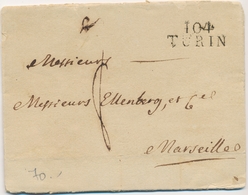 104
TURIN
Messieurs
Messieurs Ellenberg, et Cie
a Marseille
70.-